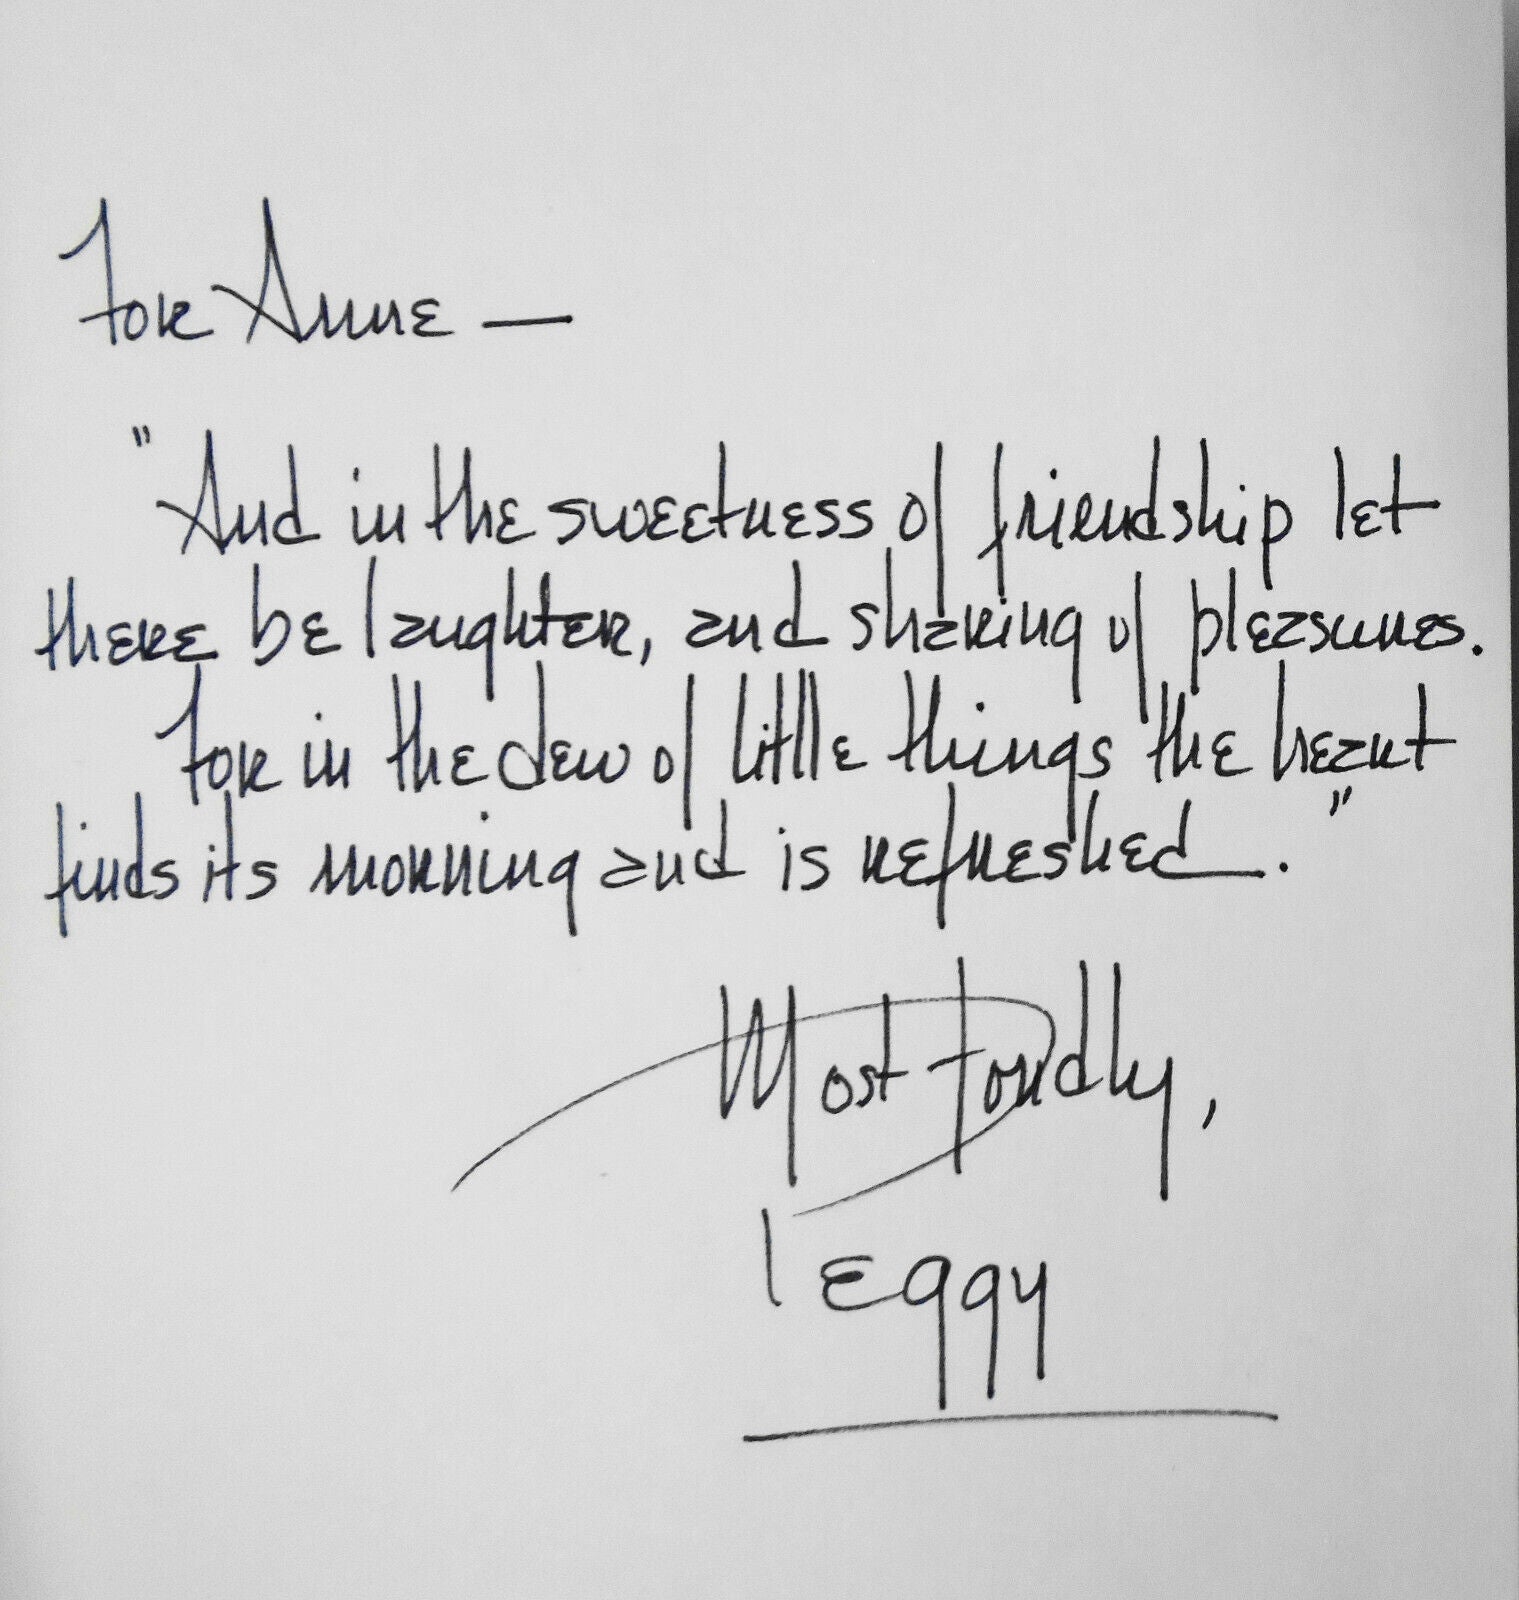 For Anne —
"And in the sweetness of friendship let
there be laughter, and sharing of pleasures.
For in the dew of little things the heart
finds its morning and is refreshed."
Most Fondly,
Peggy